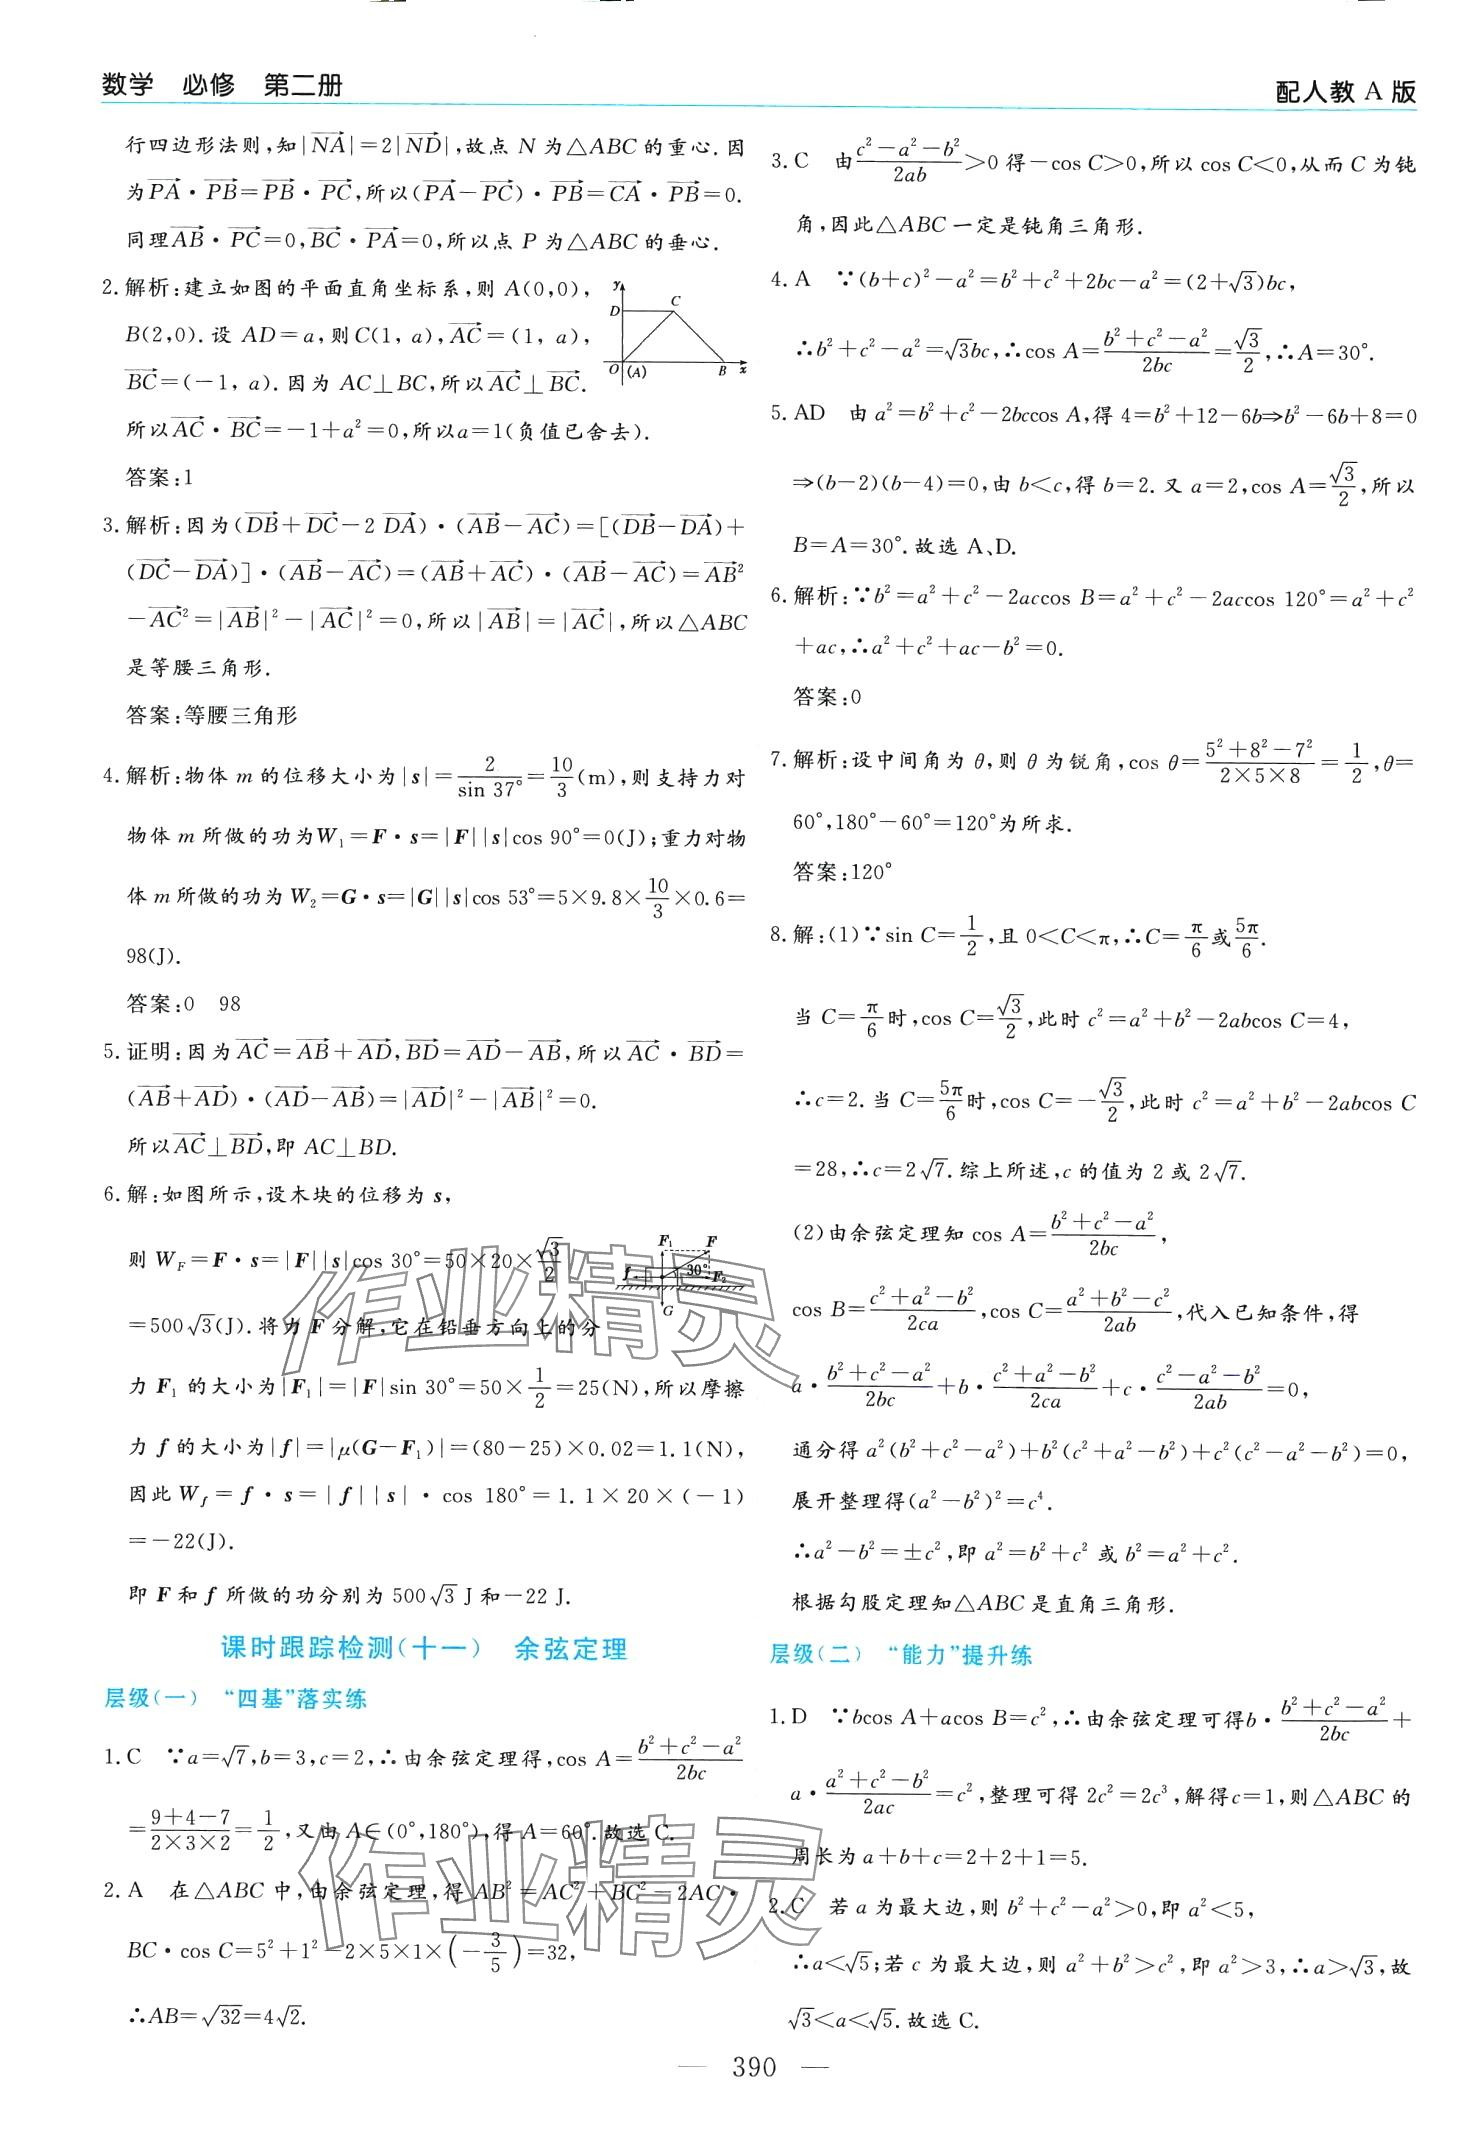 数学 必修 第二册
配人教 A 版
行四边形法则,知|NA|=2|ND|,故点 N 为△ABC 的重心.因
为PA·PB=PB·PC,所以(PA-PC)·PB=CA·PB=0.
同理AB·PC=0,BC·PA=0,所以点 P 为△ABC 的垂心.
2.解析:建立如图的平面直角坐标系,则 A(0,0),
B(2,0).设 AD=a,则C(1,a),AC=(1,a),
BC=(-1,a).因为 AC⊥BC,所以AC⊥BC.
所以AC·BC=-1+a²=0,所以a=1(负值已舍去).
y
D
C
O
(A)
B
x
答案:1
3.解析:因为(DB+DC-2 DA)·(AB-AC)=[(DB-DA)+
(DC-DA)]·(AB-AC)=(AB+AC)·(AB-AC)=AB²
-AC²=|AB|²-|AC|²=0,所以|AB|=|AC|,所以△ABC
是等腰三角形.
答案:等腰三角形
4.解析:物体 m 的位移大小为|s|=2/sin 37°=10/3(m),则支持力对
物体 m 所做的功为W₁=F·s=|F||s|cos 90°=0(J);重力对物
体 m 所做的功为 W₂=G·s=|G||s|cos 53°=5×9.8×10/3×0.6=
98(J).
答案:0 98
5.证明:因为AC=AB+AD,BD=AD-AB,所以AC·BD=
(AB+AD)·(AD-AB)=|AD|²-|AB|²=0.
所以AC⊥BD,即 AC⊥BD.
6.解:如图所示,设木块的位移为 s,
则 W_F=F·s=|F||s|cos 30°=50×20×√3/2
F₁
F
f
30°
F₂
G
=500√3(J).将力 F 分解,它在铅垂方向上的分
力 F₁ 的大小为|F₁|=|F|sin 30°=50×1/2=25(N),所以摩擦
力 f 的大小为|f|=|μ(G-F₁)|=(80-25)×0.02=1.1(N),
因此 W_f=f·s=|f||s|·cos 180°=1.1×20×(-1)
=-22(J).
即 F 和 f 所做的功分别为 500√3 J 和-22 J.
课时跟踪检测(十一) 余弦定理
层级(一) “四基”落实练
1.C ∵a=√7,b=3,c=2,∴由余弦定理得,cos A=(b²+c²-a²)/2bc
=(9+4-7)/(2×3×2)=1/2,又由 A∈(0°,180°),得 A=60°.故选 C.
2.A 在△ABC 中,由余弦定理,得 AB²=AC²+BC²-2AC·
BC·cos C=5²+1²-2×5×1×(-3/5)=32,
∴AB=√32=4√2.
3.C 由(c²-a²-b²)/2ab>0 得-cos C>0,所以 cos C<0,从而 C 为钝
角,因此△ABC 一定是钝角三角形.
4.A ∵(b+c)²-a²=b²+c²+2bc-a²=(2+√3)bc,
∴b²+c²-a²=√3bc,∴cos A=(b²+c²-a²)/2bc=√3/2,∴A=30°.
5.AD 由 a²=b²+c²-2bccos A,得 4=b²+12-6b⇒b²-6b+8=0
⇒(b-2)(b-4)=0,由 b<c,得 b=2.又 a=2,cos A=√3/2,所以
B=A=30°.故选 A、D.
6.解析:∵b²=a²+c²-2accos B=a²+c²-2accos 120°=a²+c²
+ac,∴a²+c²+ac-b²=0.
答案:0
7.解析:设中间角为 θ,则 θ 为锐角,cos θ=(5²+8²-7²)/(2×5×8)=1/2,θ=
60°,180°-60°=120°为所求.
答案:120°
8.解:(1)∵sin C=1/2,且 0<C<π,∴C=π/6或5π/6.
当 C=π/6时,cos C=√3/2,此时 c²=a²+b²-2abcos C=4,
∴c=2.当 C=5π/6时,cos C=-√3/2,此时 c²=a²+b²-2abcos C
=28,∴c=2√7.综上所述,c 的值为 2 或 2√7.
(2)由余弦定理知 cos A=(b²+c²-a²)/2bc,
cos B=(c²+a²-b²)/2ca,cos C=(a²+b²-c²)/2ab,代入已知条件,得
a·(b²+c²-a²)/2bc+b·(c²+a²-b²)/2ca+c·(c²-a²-b²)/2ab=0,
通分得 a²(b²+c²-a²)+b²(c²+a²-b²)+c²(c²-a²-b²)=0,
展开整理得(a²-b²)²=c⁴.
∴a²-b²=±c²,即 a²=b²+c² 或 b²=a²+c².
根据勾股定理知△ABC 是直角三角形.
层级(二) “能力”提升练
1.D ∵bcos A+acos B=c²,∴由余弦定理可得b·(b²+c²-a²)/2bc+
a·(a²+c²-b²)/2ac=c²,整理可得 2c²=2c³,解得c=1,则△ABC 的
周长为 a+b+c=2+2+1=5.
2.C 若 a 为最大边,则 b²+c²-a²>0,即 a²<5,
∴a<√5;若 c 为最大边,则 a²+b²>c²,即 a²>3,∴a>√3,故
√3<a<√5.故选 C.
作业精灵
作业精灵
— 390 —